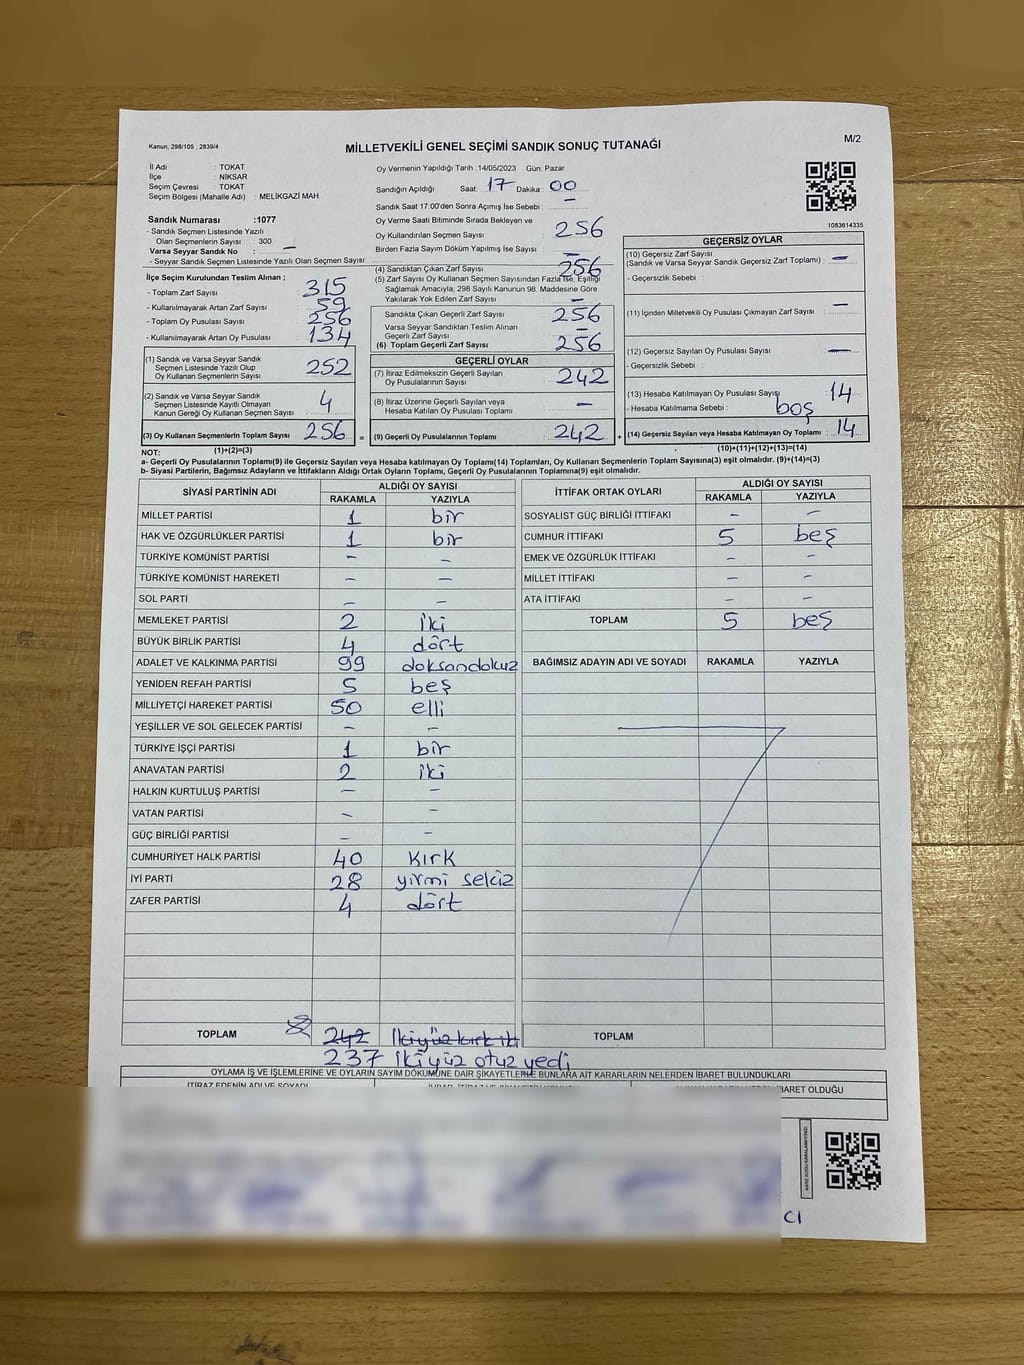 Kanun; 298/105 , 2839/4
MİLLETVEKİLİ GENEL SEÇİMİ SANDIK SONUÇ TUTANAĞI
M/2
İl Adı : TOKAT
İlçe : NİKSAR
Seçim Çevresi : TOKAT
Seçim Bölgesi (Mahalle Adı) : MELİKGAZİ MAH.
Oy Vermenin Yapıldığı Tarih : 14/05/2023 Gün: Pazar
Sandığın Açıldığı Saat: 17 Dakika : 00
Sandık Saat 17.00'den Sonra Açımış İse Sebebi : –
Sandık Numarası :1077
- Sandık Seçmen Listesinde Yazılı
Olan Seçmenlerin Sayısı : 300
Varsa Seyyar Sandık No : –
- Seyyar Sandık Seçmen Listesinde Yazılı Olan Seçmen Sayısı:
Oy Verme Saati Bitiminde Sırada Bekleyen ve
Oy Kullandırılan Seçmen Sayısı : 256
Birden Fazla Sayım Döküm Yapılmış İse Sayısı : –
1083614335
İlçe Seçim Kurulundan Teslim Alınan ;
- Toplam Zarf Sayısı : 315
- Kullanılmayarak Artan Zarf Sayısı : 59
- Toplam Oy Pusulası Sayısı : 256
- Kullanılmayarak Artan Oy Pusulası : 134
(1) Sandık ve Varsa Seyyar Sandık
Seçmen Listesinde Yazılı Olup
Oy Kullanan Seçmenlerin Sayısı : 252
(2) Sandık ve Varsa Seyyar Sandık
Seçmen Listesinde Kayıtlı Olmayan
Kanun Gereği Oy Kullanan Seçmen Sayısı : 4
(3) Oy Kullanan Seçmenlerin Toplam Sayısı : 256 =
(4) Sandıktan Çıkan Zarf Sayısı : 256
(5) Zarf Sayısı Oy Kullanan Seçmen Sayısından Fazla ise, Eşitliği
Sağlamak Amacıyla, 298 Sayılı Kanunun 98. Maddesine Göre
Yakılarak Yok Edilen Zarf Sayısı : –
Sandıkta Çıkan Geçerli Zarf Sayısı : 256
Varsa Seyyar Sandıktan Teslim Alınan
Geçerli Zarf Sayısı : –
(6) Toplam Geçerli Zarf Sayısı : 256
GEÇERLİ OYLAR
(7) İtiraz Edilmeksizin Geçerli Sayılan
Oy Pusulalarının Sayısı : 242
(8) İtiraz Üzerine Geçerli Sayılan veya
Hesaba Katılan Oy Pusulası Toplamı : –
(9) Geçerli Oy Pusulalarının Toplamı : 242 +
GEÇERSİZ OYLAR
(10) Geçersiz Zarf Sayısı
(Sandık ve Varsa Seyyar Sandık Geçersiz Zarf Toplamı) : –
- Geçersizlik Sebebi :
(11) İçinden Milletvekili Oy Pusulası Çıkmayan Zarf Sayısı : –
(12) Geçersiz Sayılan Oy Pusulası Sayısı : –
- Geçersizlik Sebebi :
(13) Hesaba Katılmayan Oy Pusulası Sayısı : 14
- Hesaba Katılmama Sebebi : boş
(14) Geçersiz Sayılan veya Hesaba Katılmayan Oy Toplamı : 14
NOT: (1)+(2)=(3) (10)+(11)+(12)+(13)=(14)
a- Geçerli Oy Pusulalarının Toplamı(9) ile Geçersiz Sayılan veya Hesaba katılmayan Oy Toplamı(14) Toplamları, Oy Kullanan Seçmenlerin Toplam Sayısına(3) eşit olmalıdır. (9)+(14)=(3)
b- Siyasi Partilerin, Bağımsız Adayların ve İttifakların Aldığı Ortak Oyların Toplamı, Geçerli Oy Pusulalarının Toplamına(9) eşit olmalıdır.
SİYASİ PARTİNİN ADI ALDIĞI OY SAYISI
RAKAMLA YAZIYLA
MİLLET PARTİSİ 1 bir
HAK VE ÖZGÜRLÜKLER PARTİSİ 1 bir
TÜRKİYE KOMÜNİST PARTİSİ – –
TÜRKİYE KOMÜNİST HAREKETİ – –
SOL PARTİ – –
MEMLEKET PARTİSİ 2 iki
BÜYÜK BİRLİK PARTİSİ 4 dört
ADALET VE KALKINMA PARTİSİ 99 doksandokuz
YENİDEN REFAH PARTİSİ 5 beş
MİLLİYETÇİ HAREKET PARTİSİ 50 elli
YEŞİLLER VE SOL GELECEK PARTİSİ – –
TÜRKİYE İŞÇİ PARTİSİ 1 bir
ANAVATAN PARTİSİ 2 iki
HALKIN KURTULUŞ PARTİSİ – –
VATAN PARTİSİ – –
GÜÇ BİRLİĞİ PARTİSİ – –
CUMHURİYET HALK PARTİSİ 40 kırk
İYİ PARTİ 28 yirmi sekiz
ZAFER PARTİSİ 4 dört
TOPLAM 242 İkiyüz kırk iki
237 İkiyüz otuz yedi
İTTİFAK ORTAK OYLARI ALDIĞI OY SAYISI
RAKAMLA YAZIYLA
SOSYALİST GÜÇ BİRLİĞİ İTTİFAKI – –
CUMHUR İTTİFAKI 5 beş
EMEK VE ÖZGÜRLÜK İTTİFAKI – –
MİLLET İTTİFAKI – –
ATA İTTİFAKI – –
TOPLAM 5 beş
BAĞIMSIZ ADAYIN ADI VE SOYADI RAKAMLA YAZIYLA
TOPLAM
OYLAMA İŞ VE İŞLEMLERİNE VE OYLARIN SAYIM DÖKÜMÜNE DAİR ŞİKAYETLERLE BUNLARA AİT KARARLARIN NELERDEN İBARET BULUNDUKLARI
İTİRAZ EDENİN ADI VE SOYADI
İBARET OLDUĞU
CI